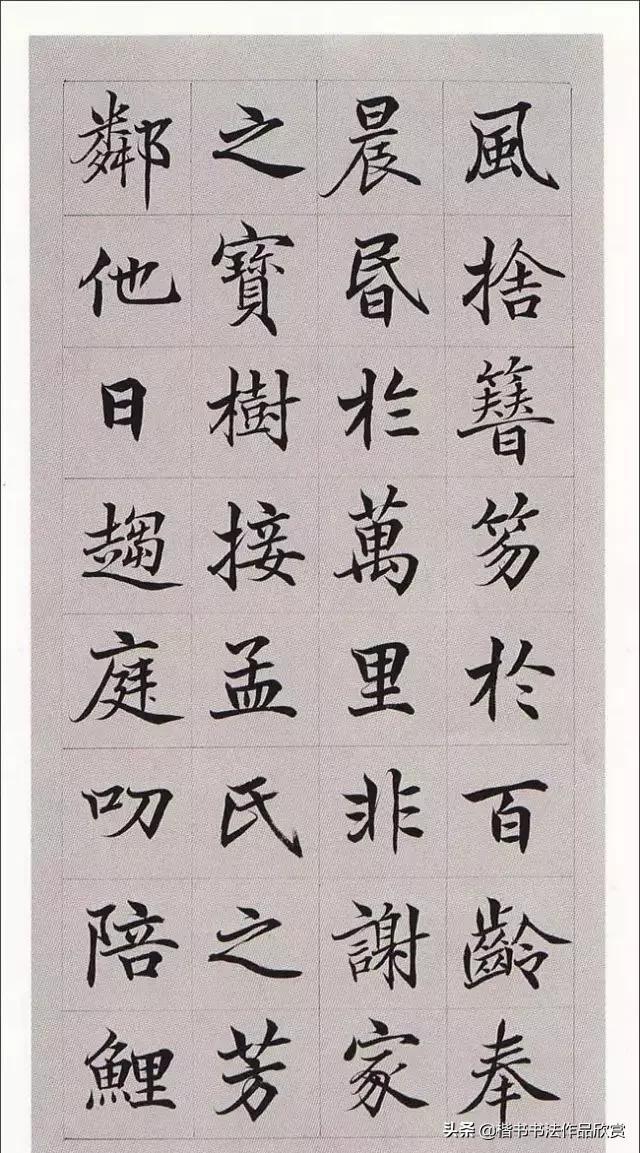 風捨簪笏於百齡奉
晨昏於萬里非謝家
之寶樹接孟氏之芳
鄰他日趨庭叨陪鯉
头条 @楷书书法作品欣赏